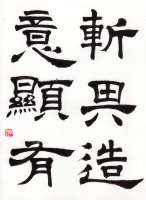 斬造
意顯有